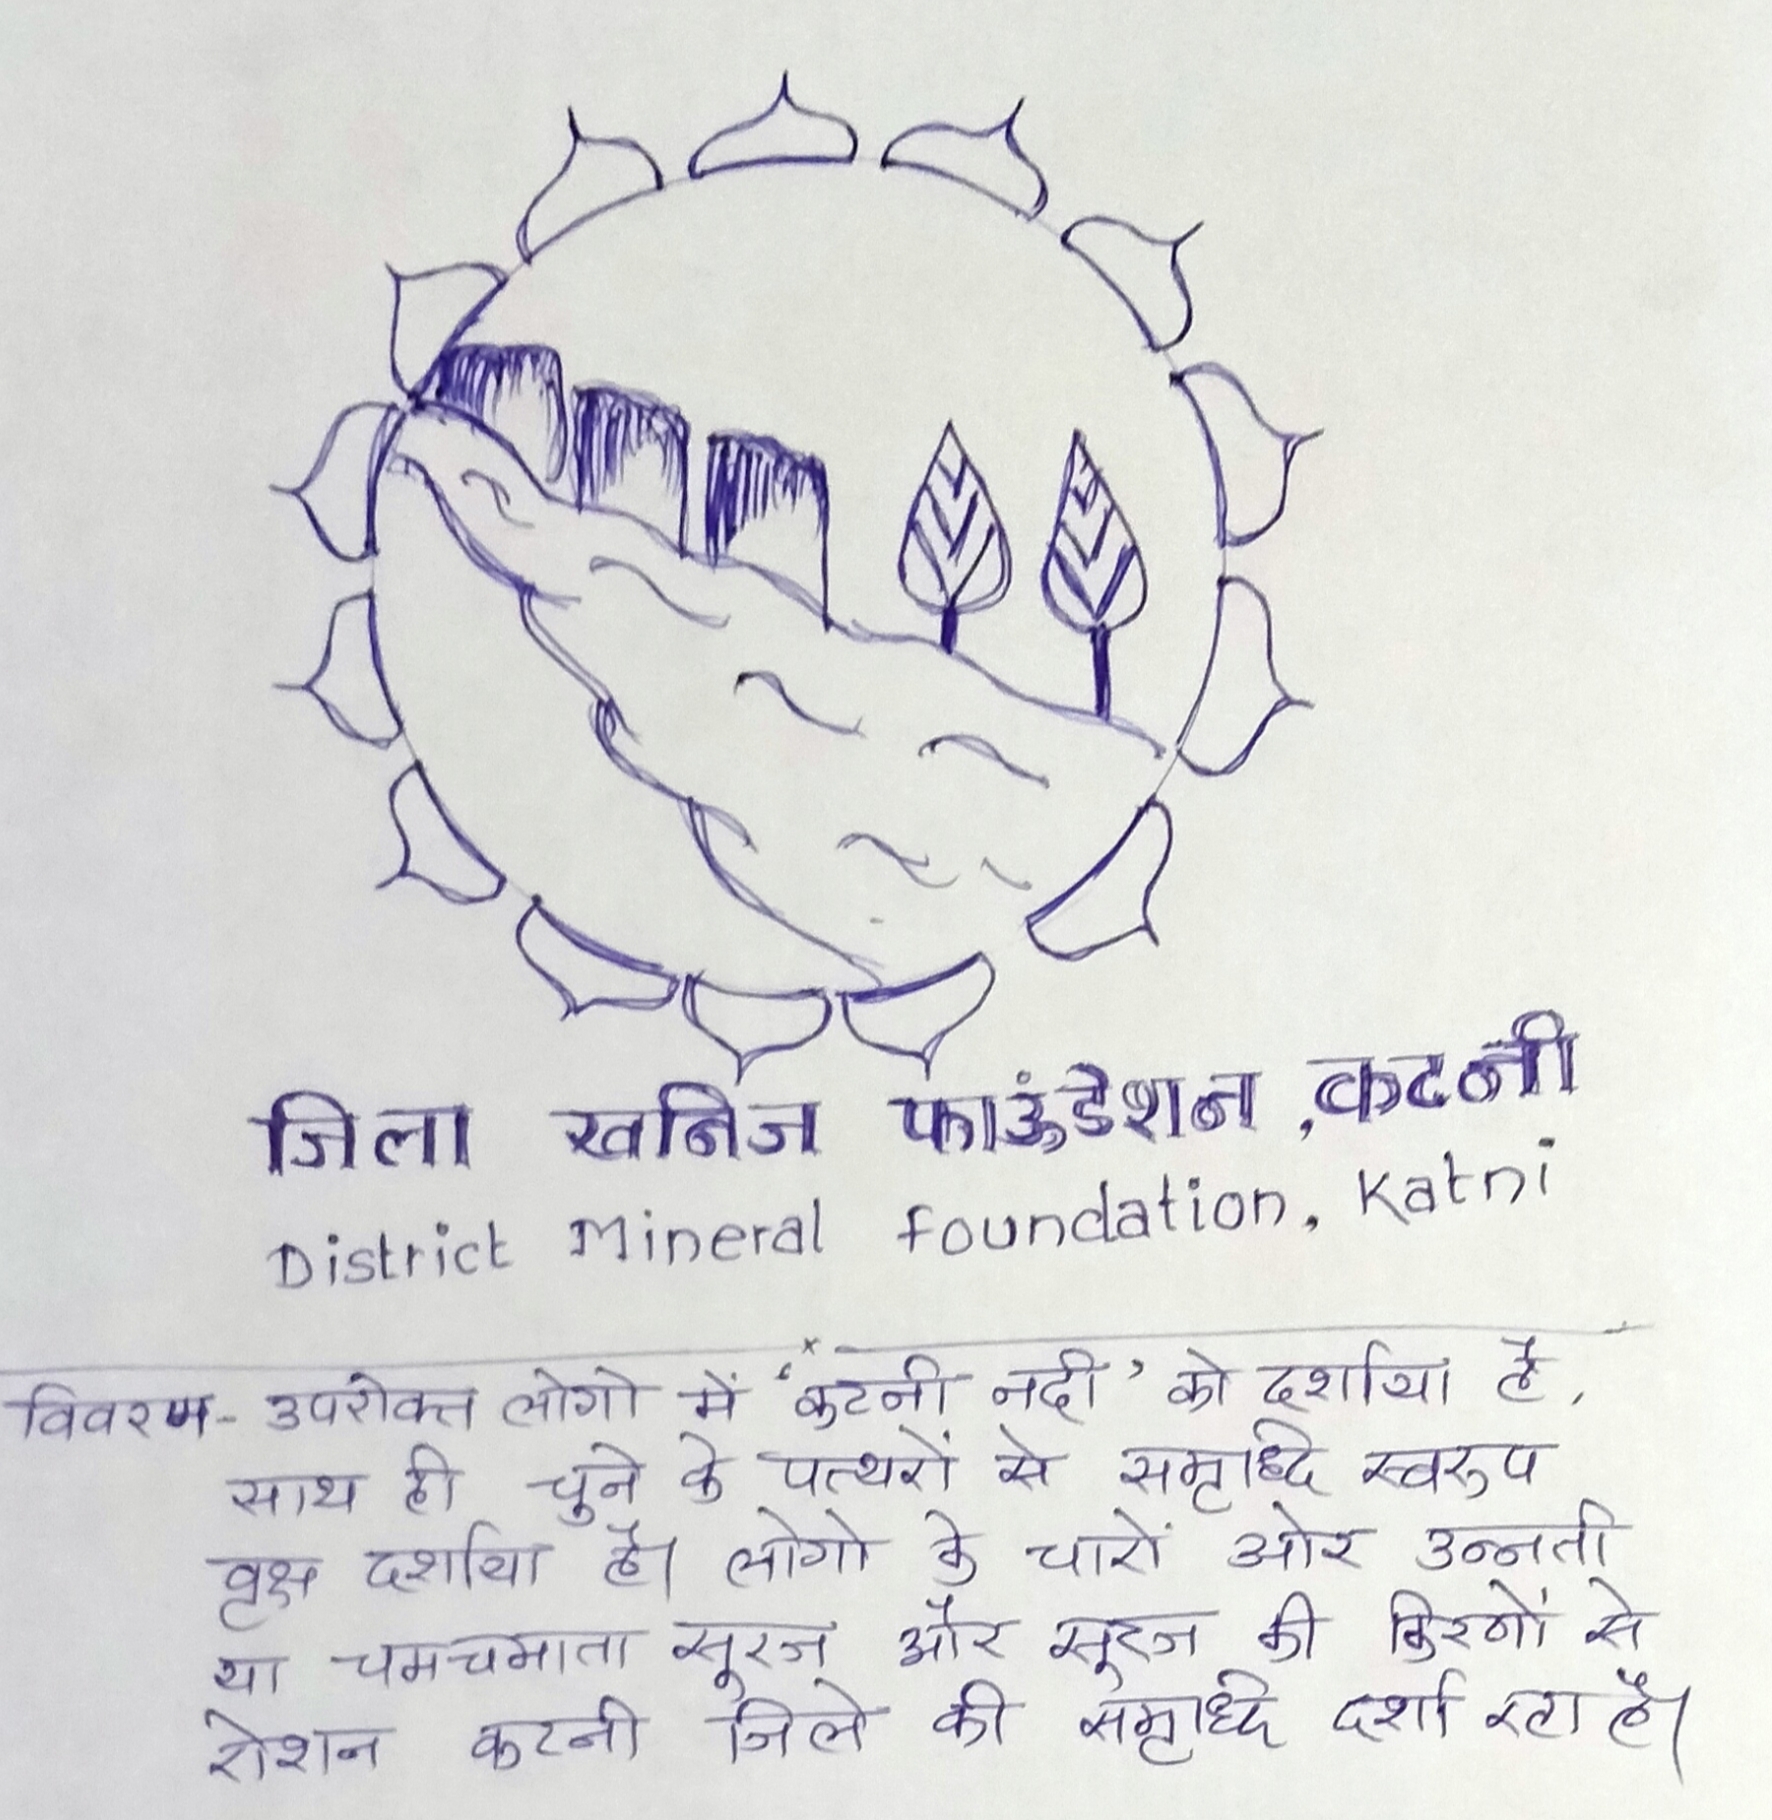 जिला खनिज फाऊंडेशन, कटनी
District Mineral Foundation, Katni
विवरण- उपरोक्त लोगो में 'कटनी नदी' को दर्शाया है,
साथ ही चुने के पत्थरों से समृध्दि स्वरुप
वृक्ष दर्शाया है। लोगो के चारों ओर उन्नती
या चमचमाता सूरज और सूरज की किरणों से
रोशन कटनी जिले की समृध्दि दर्शा रहा है।